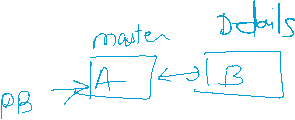 master Details
A B
PB